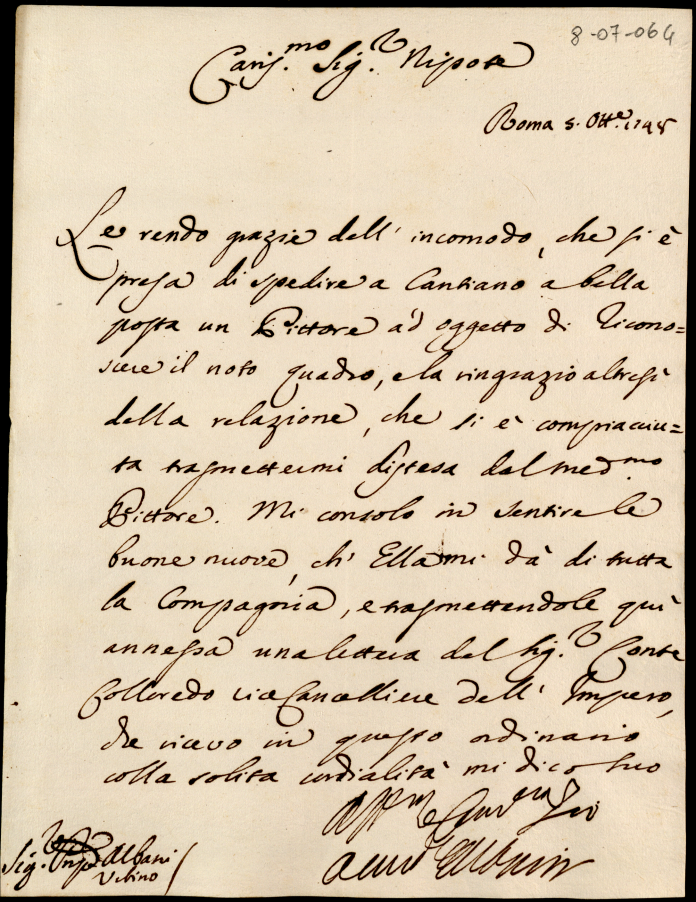 8-07-064
Cariss.mo Sig.r Nipote
Roma 5. Ott.e 1748
Le rendo grazie dell' incomodo, che si è
presa di spedire a Cantiano a bella
posta un Pittore ad oggetto di ricono=
scere il noto quadro, e la ringrazio altresì
della relazione, che si è compiaciu=
ta trasmettermi distesa dal med.mo
Pittore. Mi consolo in sentire le
buone nuove, ch' Ella mi dà di tutta
la Compagnia, e trasmettendole qui
annessa una lettera del Sig.r Conte
Colloredo vice Cancelliere dell' Impero,
che ricevo in questo ordinario
colla solita cordialità mi dico suo
Aff.mo Zio
Albani
Sig.r Albani
Urbino